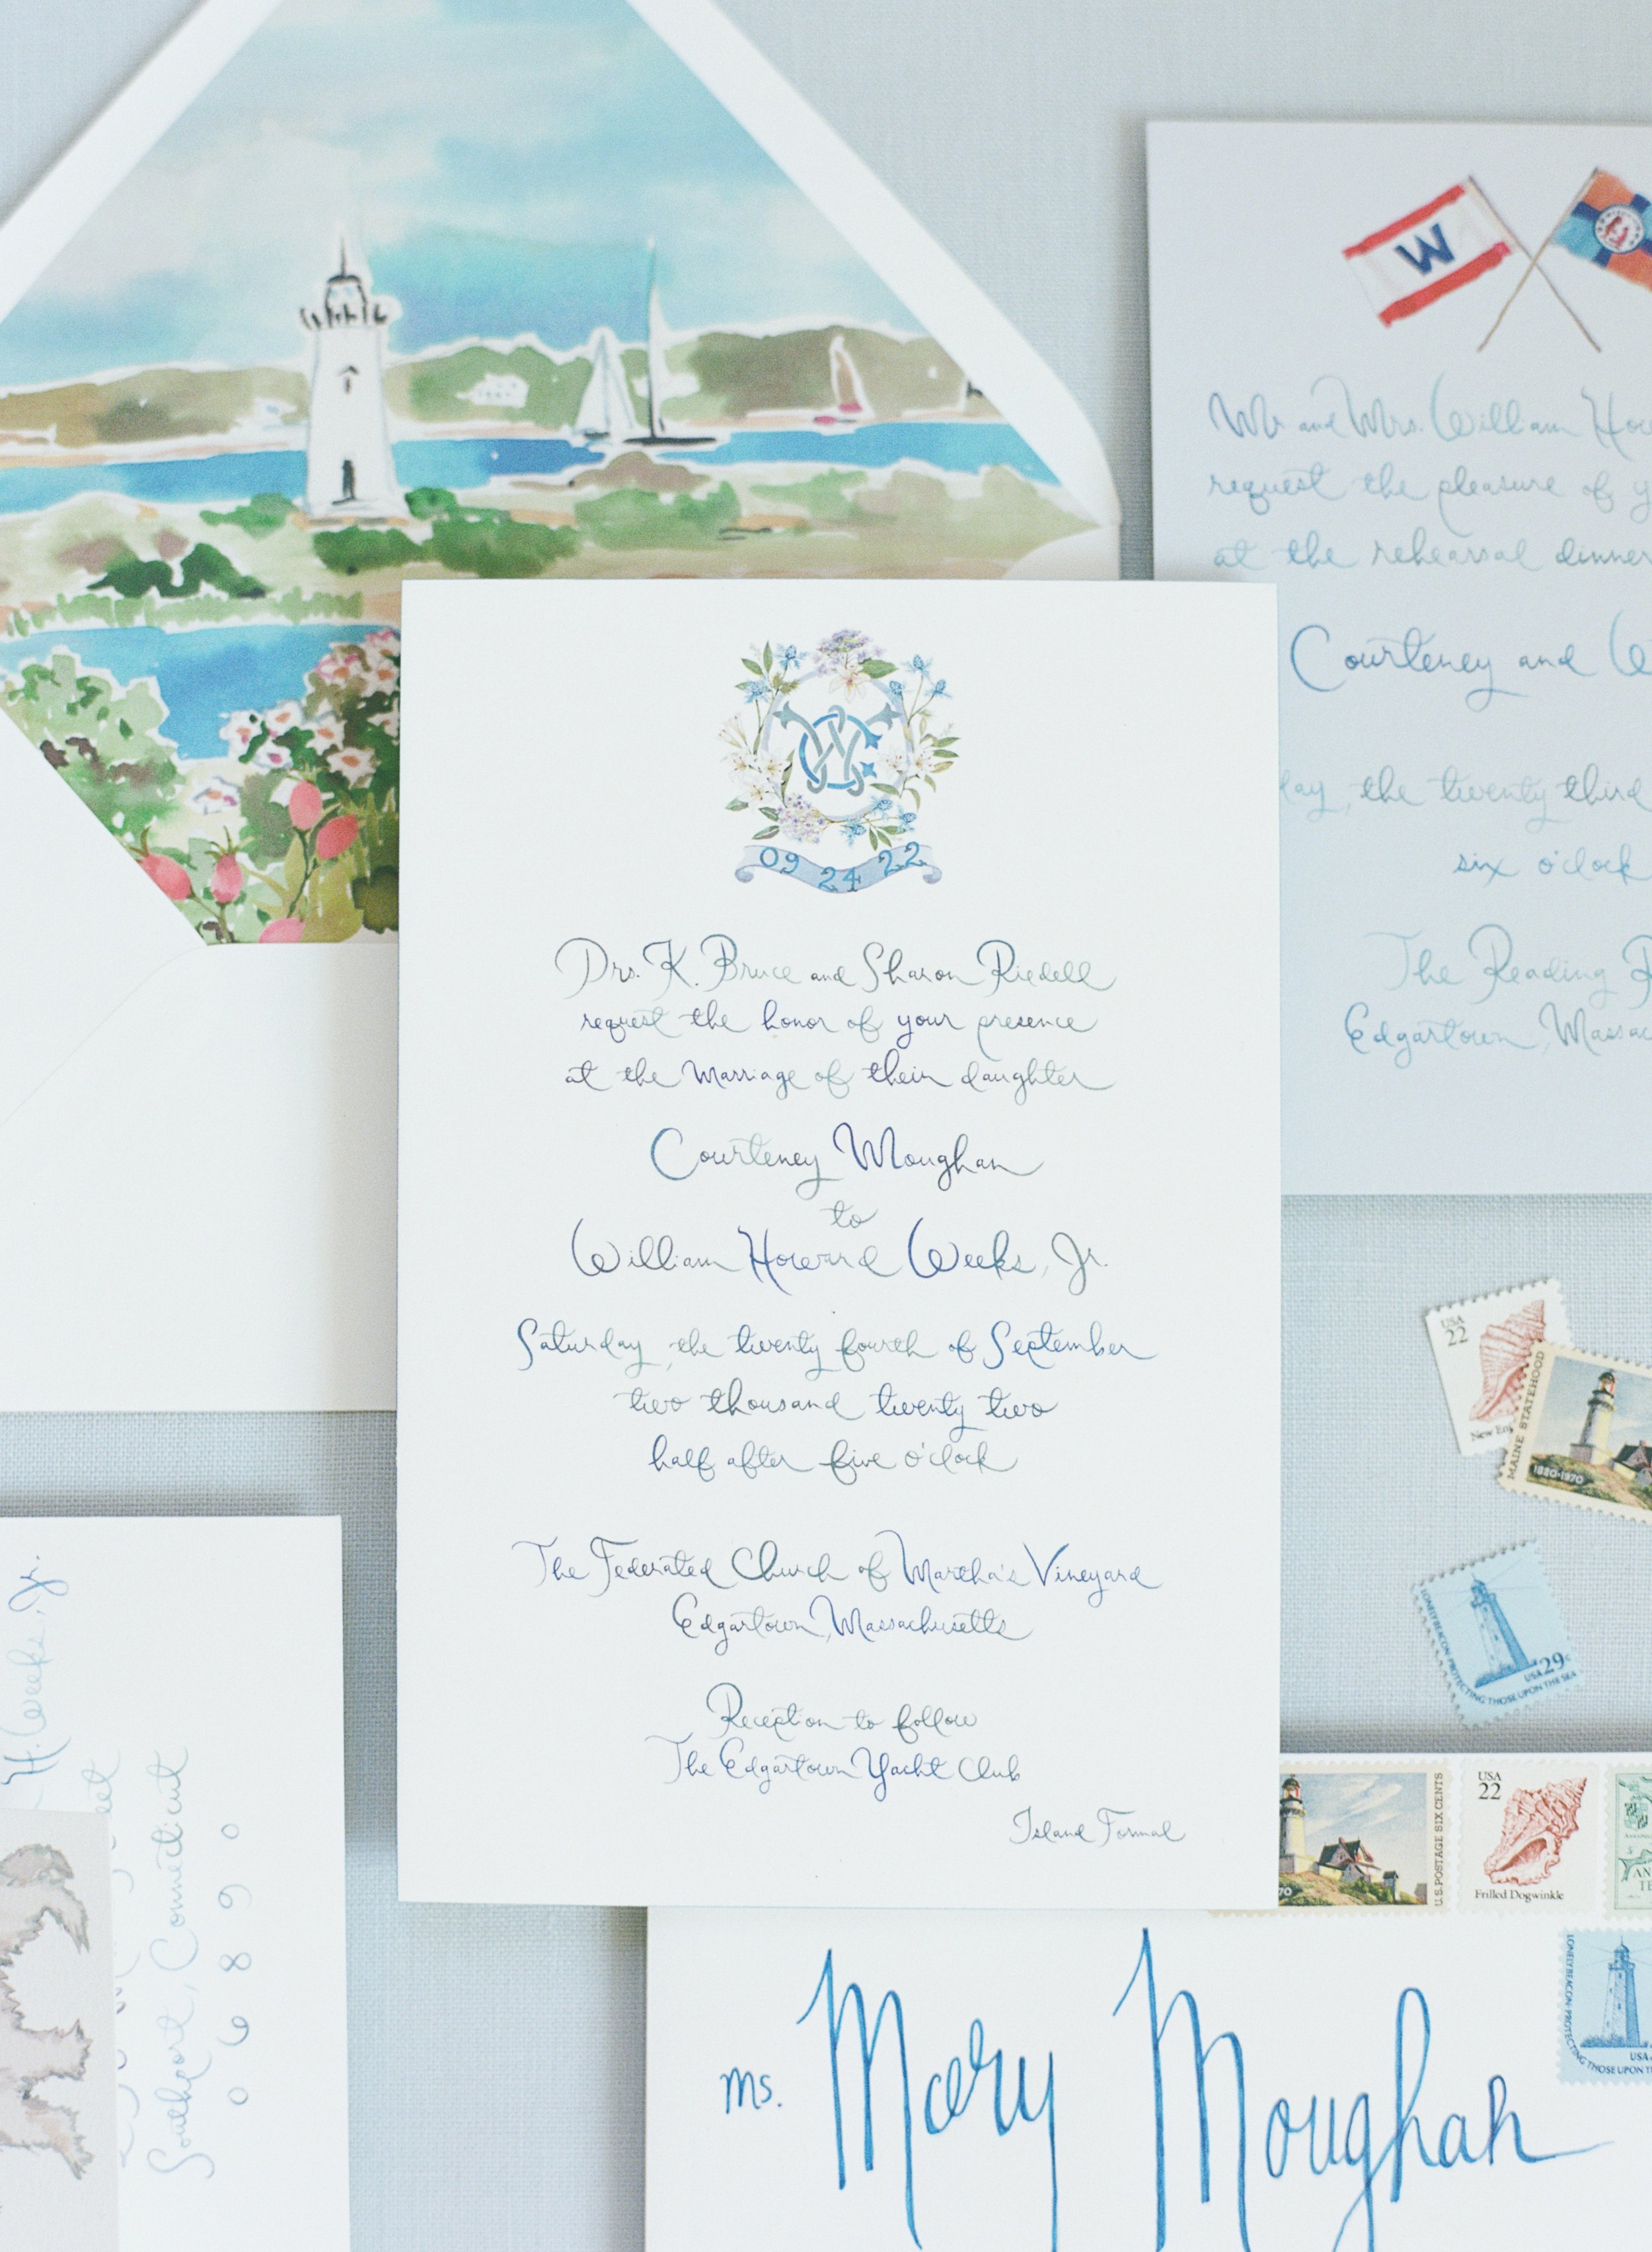 W
Mr and Mrs. William
request the pleasure of
at the rehearsal dinner
Courteney and
the twenty third
six o'clock
The Reading
Edgartown,
09 24 22
Drs. K. Bruce and Sharon Riedell
request the honor of your presence
at the Marriage of their daughter
Courteney Moughan
to
William Howard Weeks, Jr.
Saturday, the twenty fourth of September
two thousand twenty two
half after five o'clock
The Federated Church of Martha's Vineyard
Edgartown, Massachusetts
Reception to follow
The Edgartown Yacht Club
Island Formal
USA
22
New En
MAINE STATEHOOD
1820-1970
LONELY BEACON·PROTECTING THOSE UPON THE SEA
USA 29c
H. Weeks, Jr.
Southport, Connecticut
06890
70
U.S. POSTAGE SIX CENTS
USA
22
Frilled Dogwinkle
AN
TE
LONELY BEACON·PROTECTING THOSE UPON T
USA
Ms. Mary Moughan